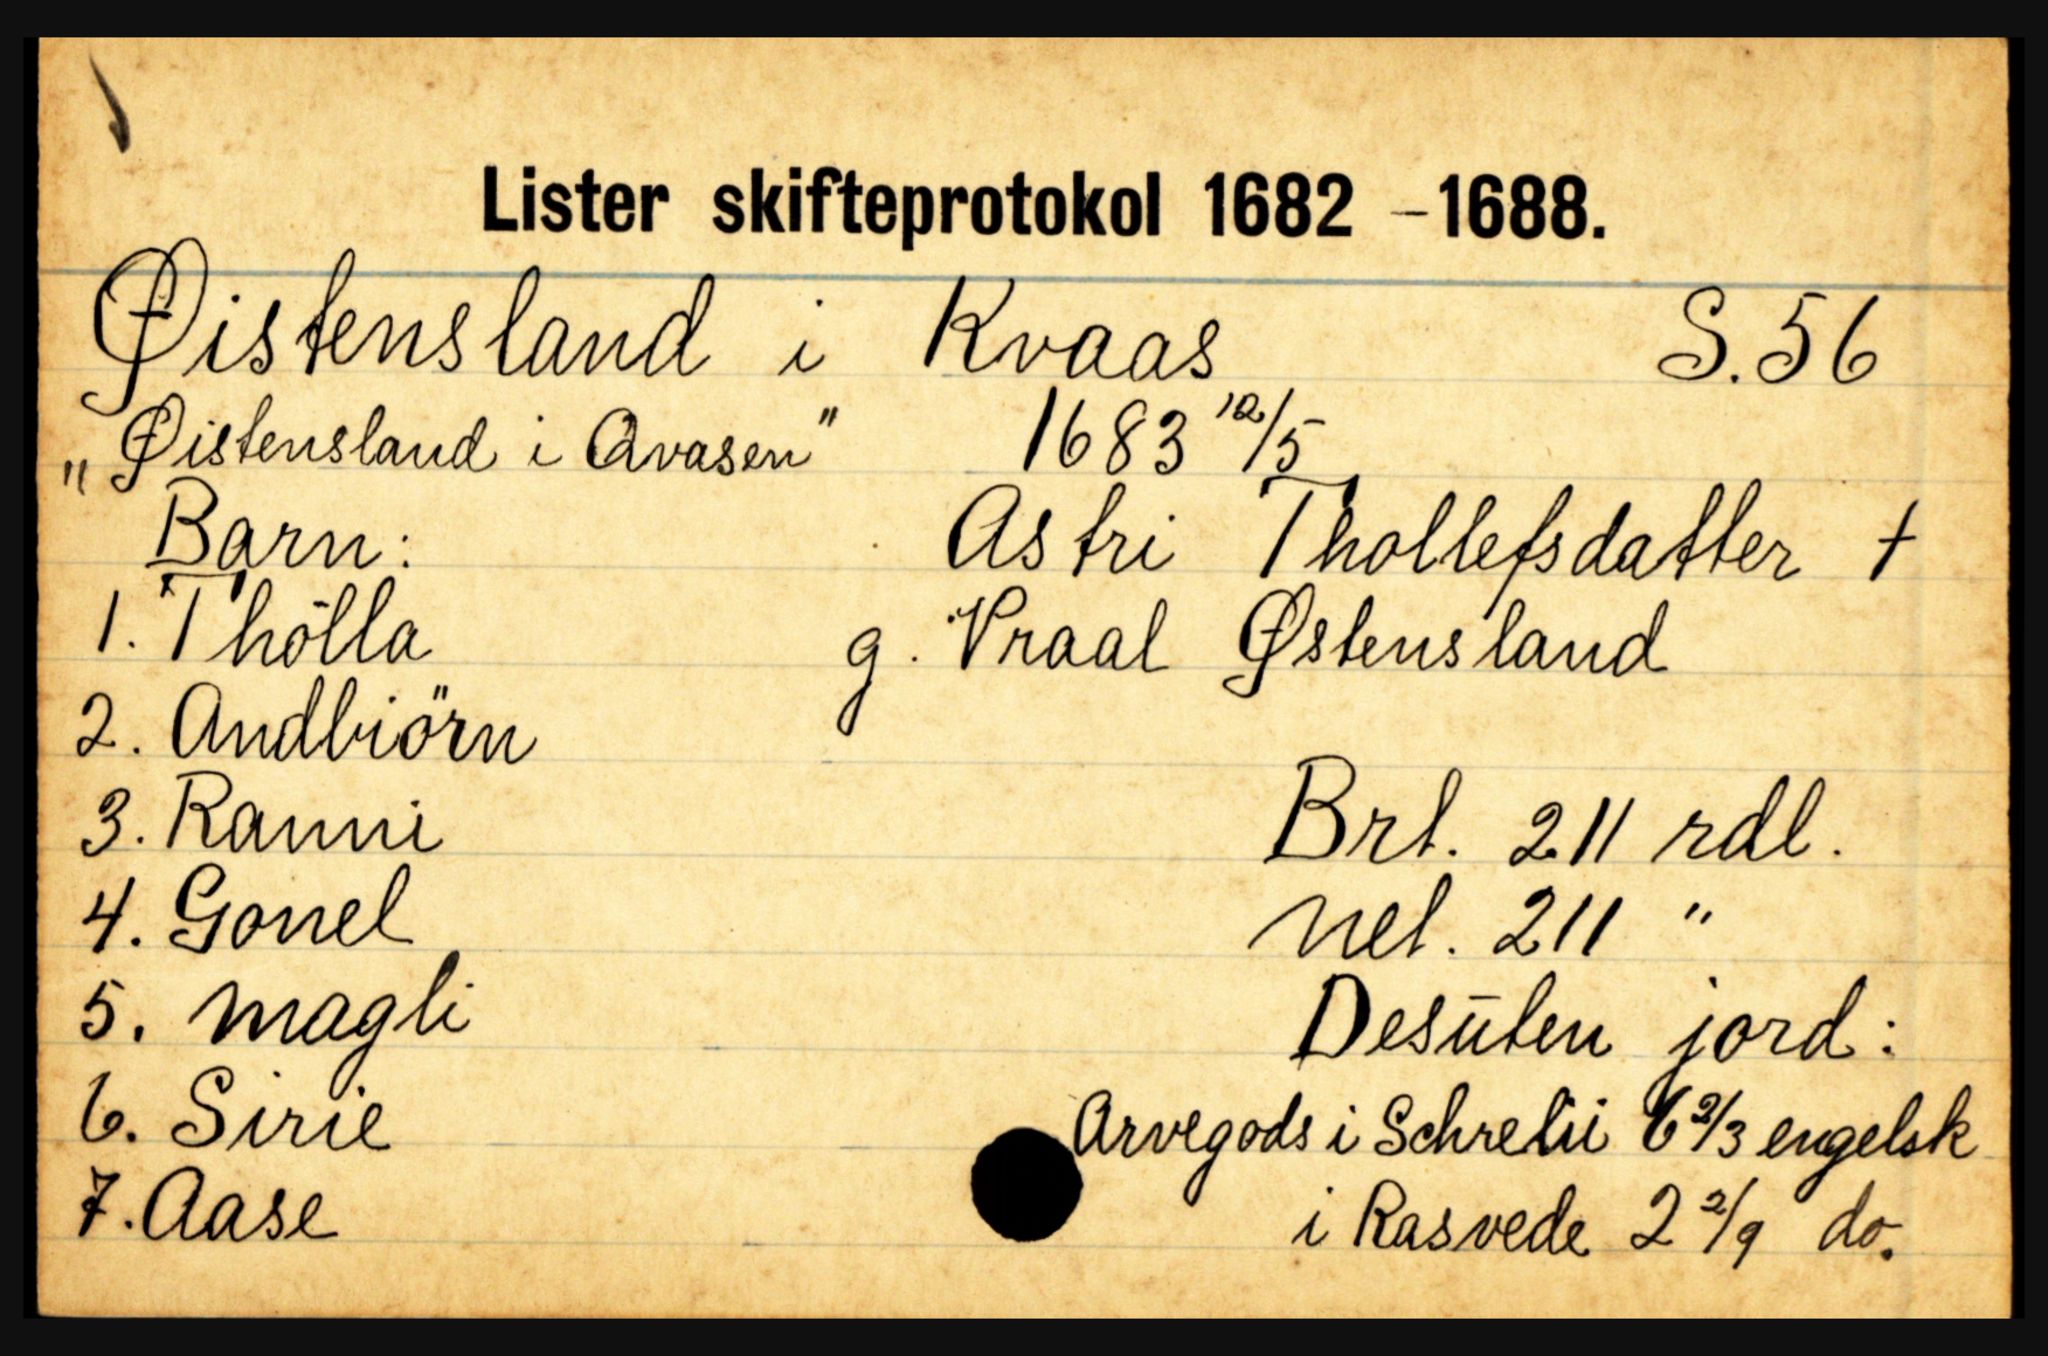 Lister skifteprotokol 1682 - 1688.
Øistensland i Kvaas S. 56
"Øistensland i Qvasen" 1683 12/5
Barn: Astri Thollefsdatter †
1. Thölla g. Vraal Østensland
2. Andbiörn
3. Ranni Brt. 211 rdl.
4. Gonel net. 211 "
5. Magli Desūten jord:
6. Sirie Arvegods i Schrelii 6 2/3 engelsk
7. Aase i Rasvede 2 2/9 do.